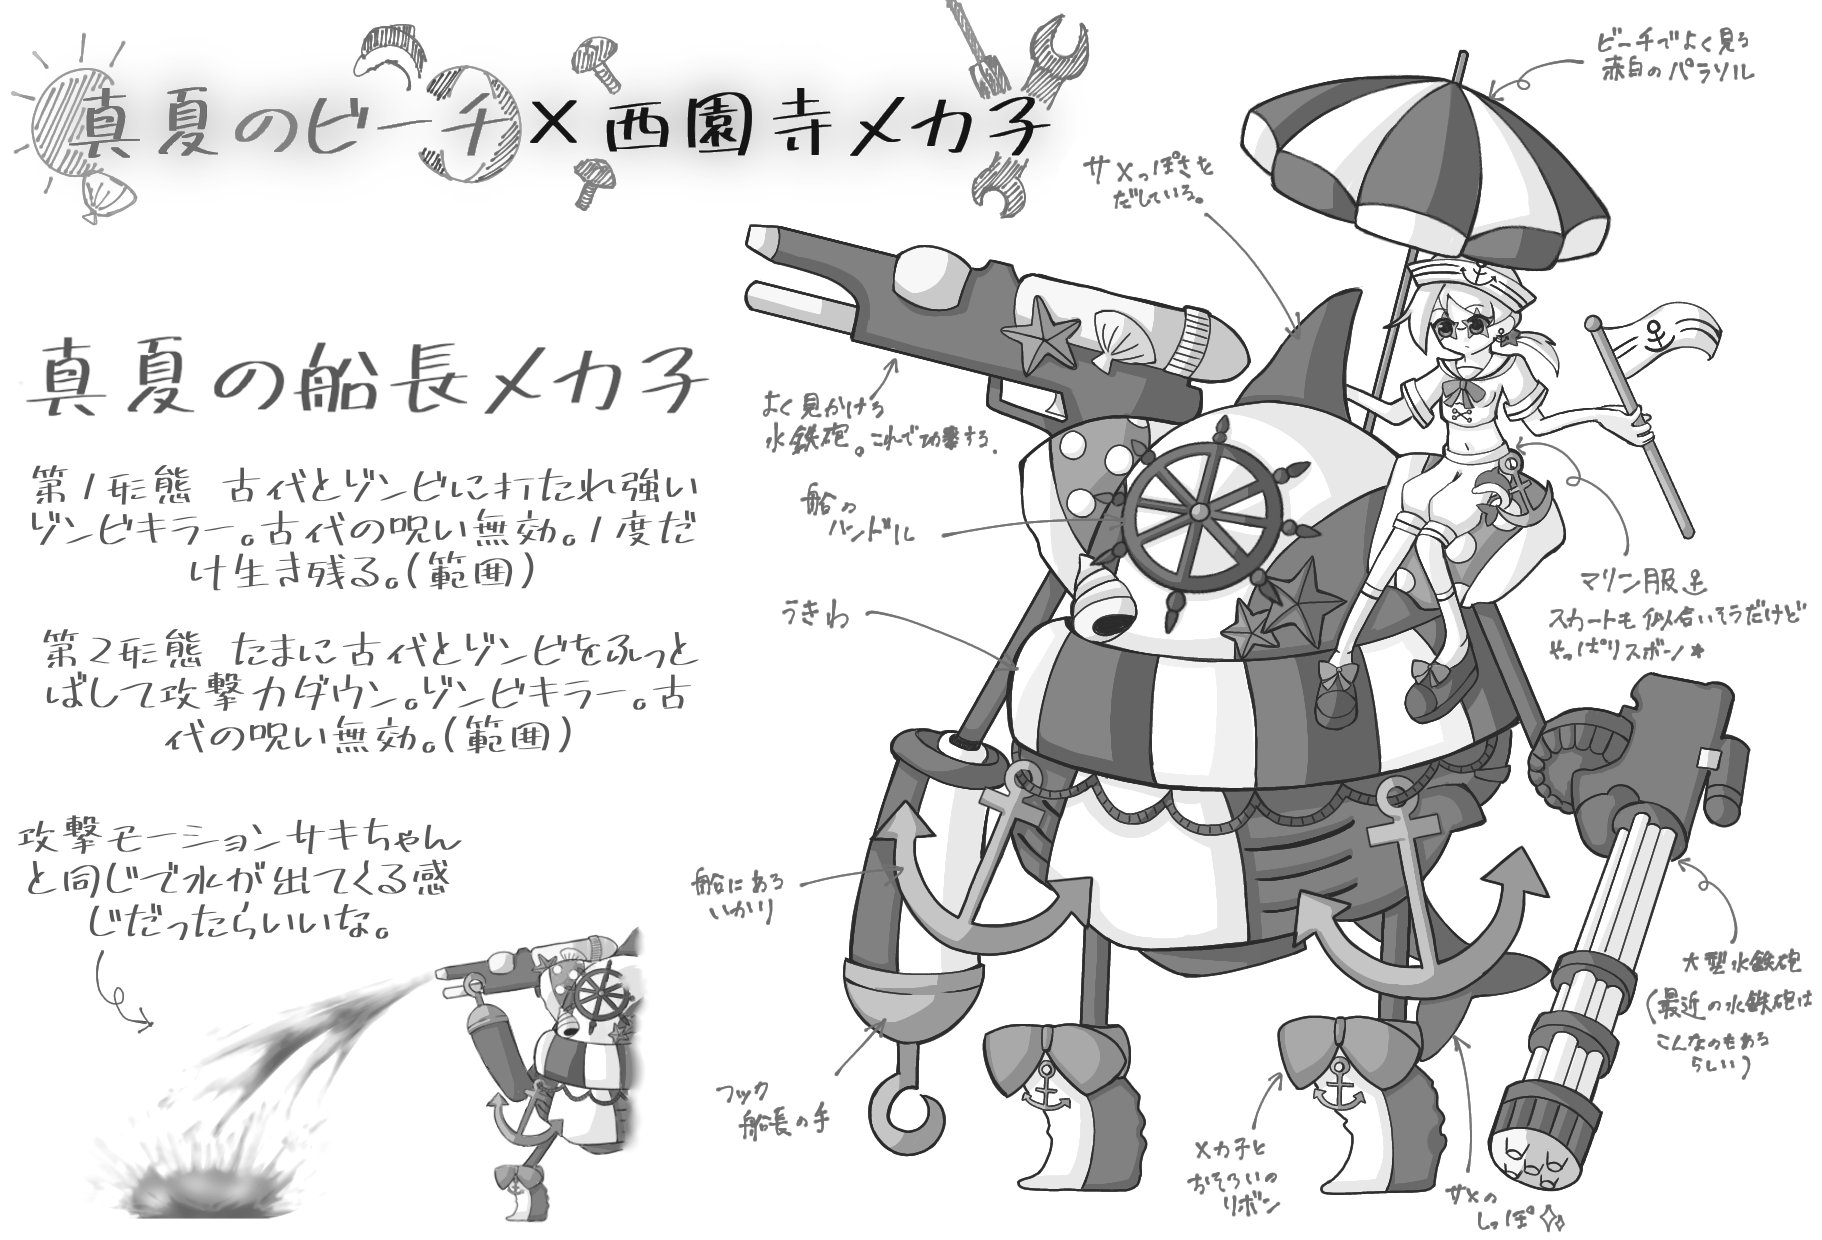 真夏のビーチ×西園寺メカ子
真夏の船長メカ子
第1形態 古代とゾンビに打たれ強い
ゾンビキラー。古代の呪い無効。1度だ
け生き残る。(範囲)
第2形態 たまに古代とゾンビをふっと
ばして攻撃力ダウン。ゾンビキラー。古
代の呪い無効。(範囲)
攻撃モーションサキちゃん
と同じで水が出てくる感
じだったらいいな。
ビーチでよく見る
赤白のパラソル
サメっぽさを
だしている。
よく見かける
水鉄砲。これで攻撃する.
船の
ハンドル
うきわ
船にある
いかり
フック
船長の手
マリン服
スカートも似合いそうだけど
やっぱりズボン★
大型水鉄砲
(最近の水鉄砲は
こんなのもある
らしい)
メカ子と
おそろいの
リボン
サメの
しっぽ